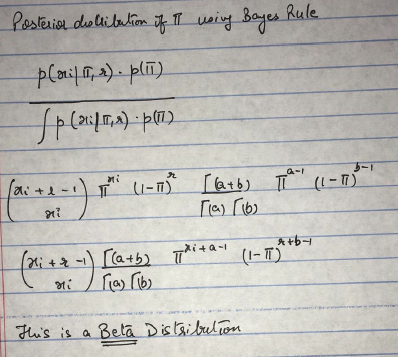 Posterior distribution of π using Bayes Rule
p(xi|π,r) . p(π)
∫ p(xi|π,r) . p(π)
(xi + r - 1 xi) π^xi (1-π)^r Γ(a+b) / Γ(a) Γ(b) π^a-1 (1-π)^b-1
(xi + r - 1 xi) Γ(a+b) / Γ(a) Γ(b) π^xi+a-1 (1-π)^r+b-1
This is a Beta Distribution